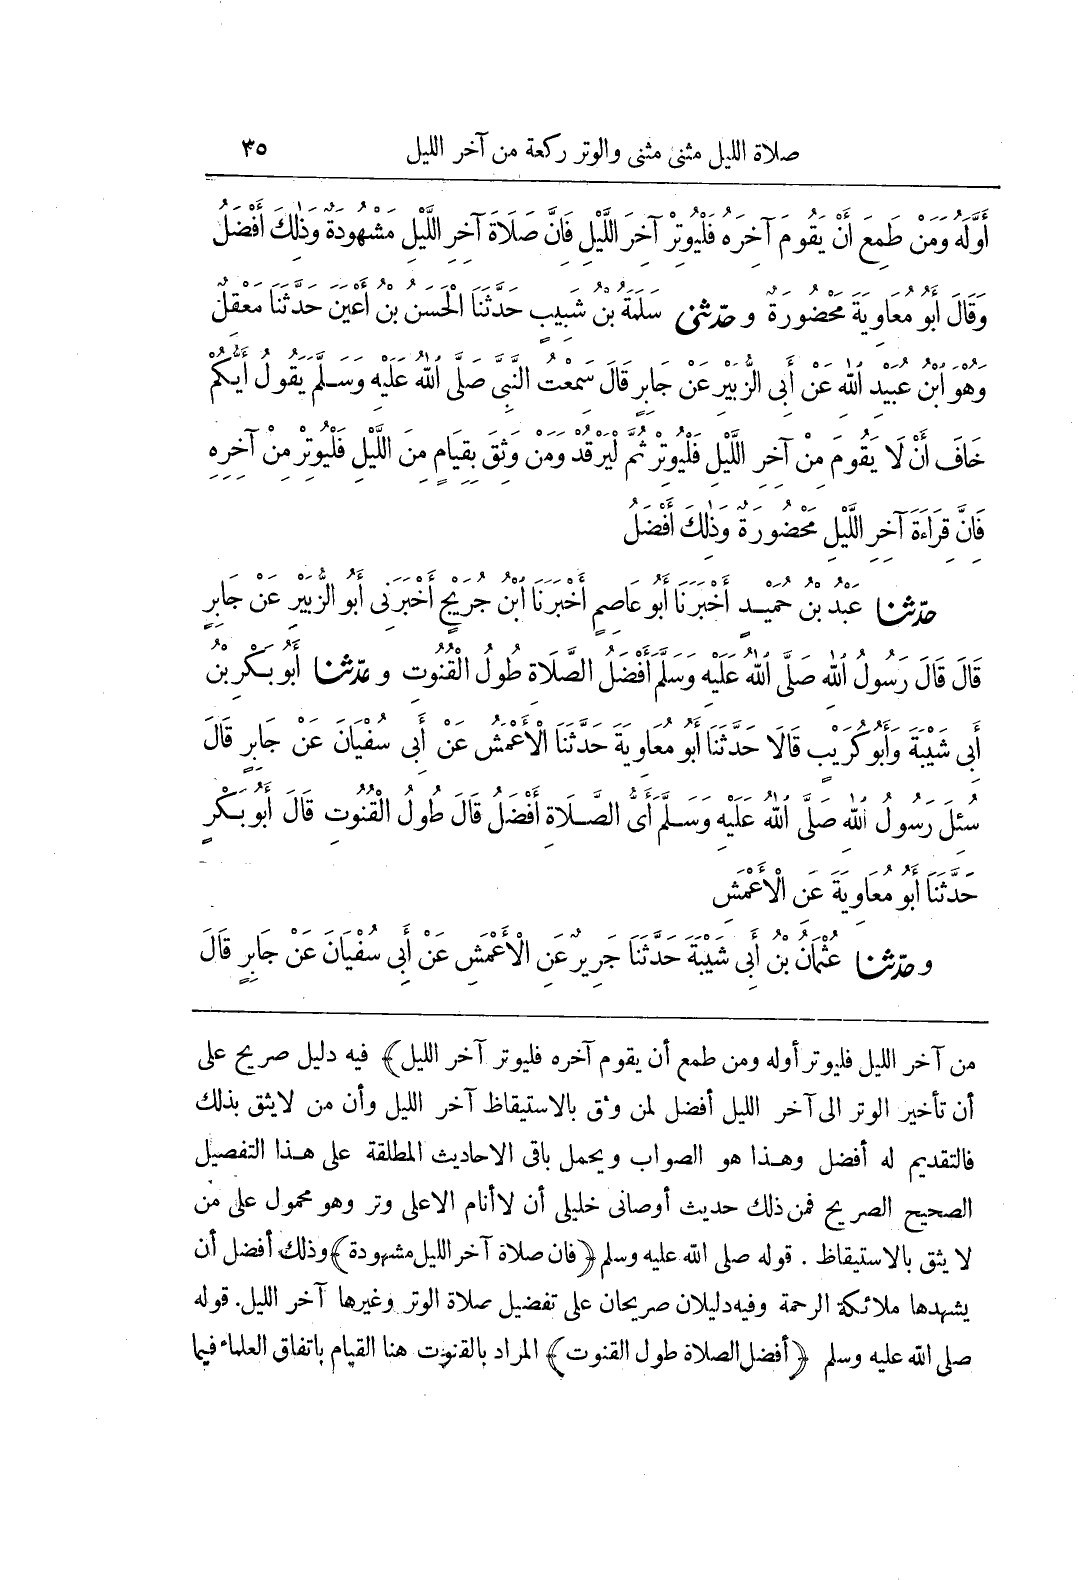 صلاة الليل مثنى مثنى والوتر ركعة من آخر الليل ٣٥
أَوَّلَهُ وَمَنْ طَمِعَ أَنْ يَقُومَ آخِرَهُ فَلْيُوتِرْ آخِرَ اللَّيْلِ فَانَّ صَلَاةَ آخِرِ اللَّيْلِ مَشْهُودَةٌ وَذٰلِكَ أَفْضَلُ
وَقَالَ أَبُو مُعَاوِيَةَ مَحْضُورَةٌ و حَدَّثَنِى سَلَمَةُ بْنُ شَبِيبٍ حَدَّثَنَا الْحَسَنُ بْنُ أَعْيَنَ حَدَّثَنَا مَعْقِلٌ
وَهُوَ ابْنُ عُبَيْدِ اللهِ عَنْ أَبِى الزُّبَيْرِ عَنْ جَابِرٍ قَالَ سَمِعْتُ النَّبِىَّ صَلَّى اللهُ عَلَيْهِ وَسَلَّمَ يَقُولُ أَيُّكُمْ
خَافَ أَنْ لَا يَقُومَ مِنْ آخِرِ اللَّيْلِ فَلْيُوتِرْ ثُمَّ لْيَرْقُدْ وَمَنْ وَثِقَ بِقِيَامٍ مِنَ اللَّيْلِ فَلْيُوتِرْ مِنْ آخِرِهِ
فَانَّ قِرَاءَةَ آخِرِ اللَّيْلِ مَحْضُورَةٌ وَذٰلِكَ أَفْضَلُ
حَدَّثَنَا عَبْدُ بْنُ حُمَيْدٍ أَخْبَرَنَا أَبُو عَاصِمٍ أَخْبَرَنَا ابْنُ جُرَيْجٍ أَخْبَرَنِى أَبُو الزُّبَيْرِ عَنْ جَابِرٍ
قَالَ قَالَ رَسُولُ اللهِ صَلَّى اللهُ عَلَيْهِ وَسَلَّمَ أَفْضَلُ الصَّلَاةِ طُولُ الْقُنُوتِ و حَدَّثَنَا أَبُو بَكْرِ بْنُ
أَبِى شَيْبَةَ وَأَبُو كُرَيْبٍ قَالَا حَدَّثَنَا أَبُو مُعَاوِيَةَ حَدَّثَنَا الْأَعْمَشُ عَنْ أَبِى سُفْيَانَ عَنْ جَابِرٍ قَالَ
سُئِلَ رَسُولُ اللهِ صَلَّى اللهُ عَلَيْهِ وَسَلَّمَ أَىُّ الصَّلَاةِ أَفْضَلُ قَالَ طُولُ الْقُنُوتِ قَالَ أَبُو بَكْرٍ
حَدَّثَنَا أَبُو مُعَاوِيَةَ عَنِ الْأَعْمَشِ
و حَدَّثَنَا عُثْمَانُ بْنُ أَبِى شَيْبَةَ حَدَّثَنَا جَرِيرٌ عَنِ الْأَعْمَشِ عَنْ أَبِى سُفْيَانَ عَنْ جَابِرٍ قَالَ
من آخر الليل فليوتر أوله ومن طمع أن يقوم آخره فليوتر آخر الليل﴾ فيه دليل صريح على
أن تأخير الوتر الى آخر الليل أفضل لمن وثق بالاستيقاظ آخر الليل وأن من لايثق بذلك
فالتقديم له أفضل وهذا هو الصواب ويحمل باقى الاحاديث المطلقة على هذا التفصيل
الصحيح الصريح فمن ذلك حديث أوصانى خليلى أن لا أنام الاعلى وتر وهو محمول على من
لا يثق بالاستيقاظ . قوله صلى الله عليه وسلم ﴿فان صلاة آخر الليل مشهودة﴾ وذلك أفضل أن
يشهدها ملائكة الرحمة وفيه دليلان صريحان على تفضيل صلاة الوتر وغيرها آخر الليل. قوله
صلى الله عليه وسلم ﴿أفضل الصلاة طول القنوت﴾ المراد بالقنوت هنا القيام باتفاق العلماء فيما